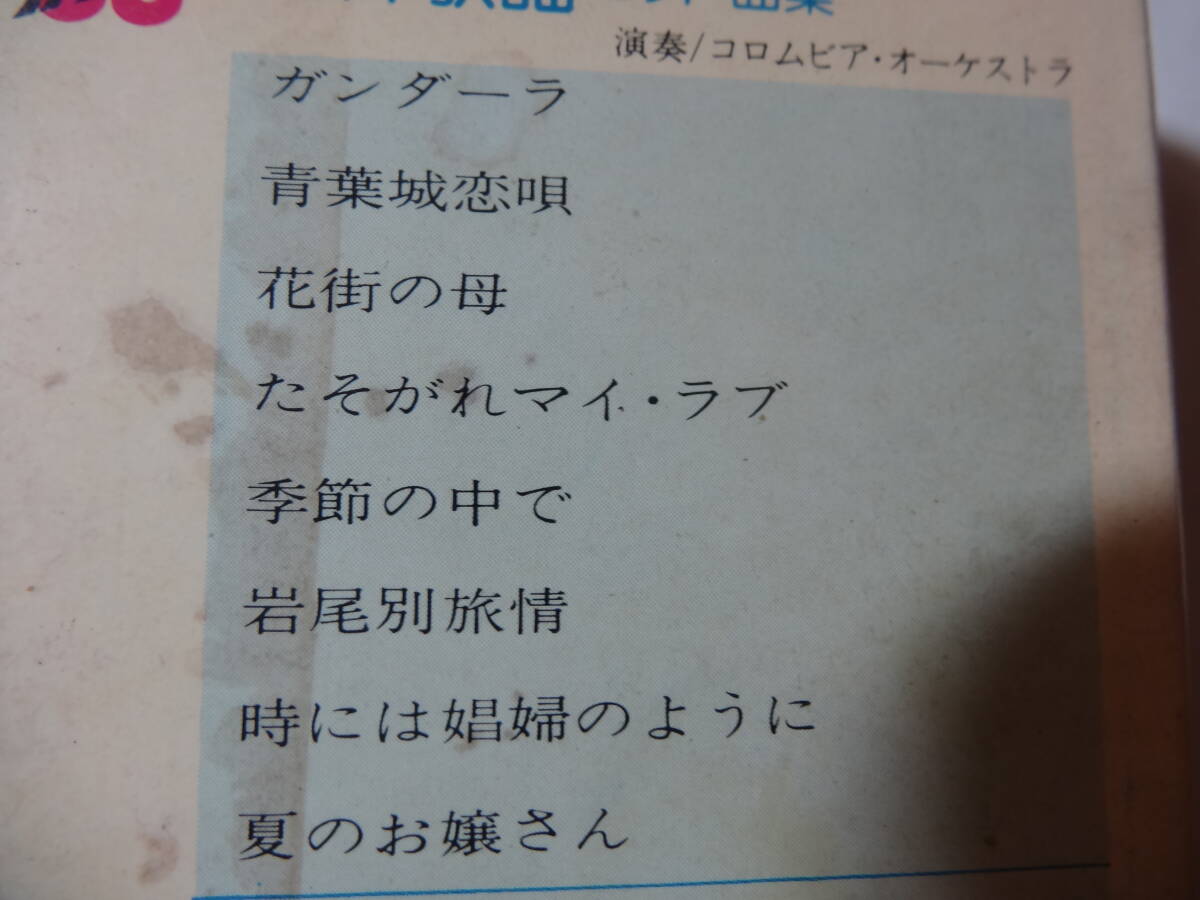 歌謡ヒット曲集
演奏/コロムビア・オーケストラ
ガンダーラ
青葉城恋唄
花街の母
たそがれマイ・ラブ
季節の中で
岩尾別旅情
時には娼婦のように
夏のお嬢さん